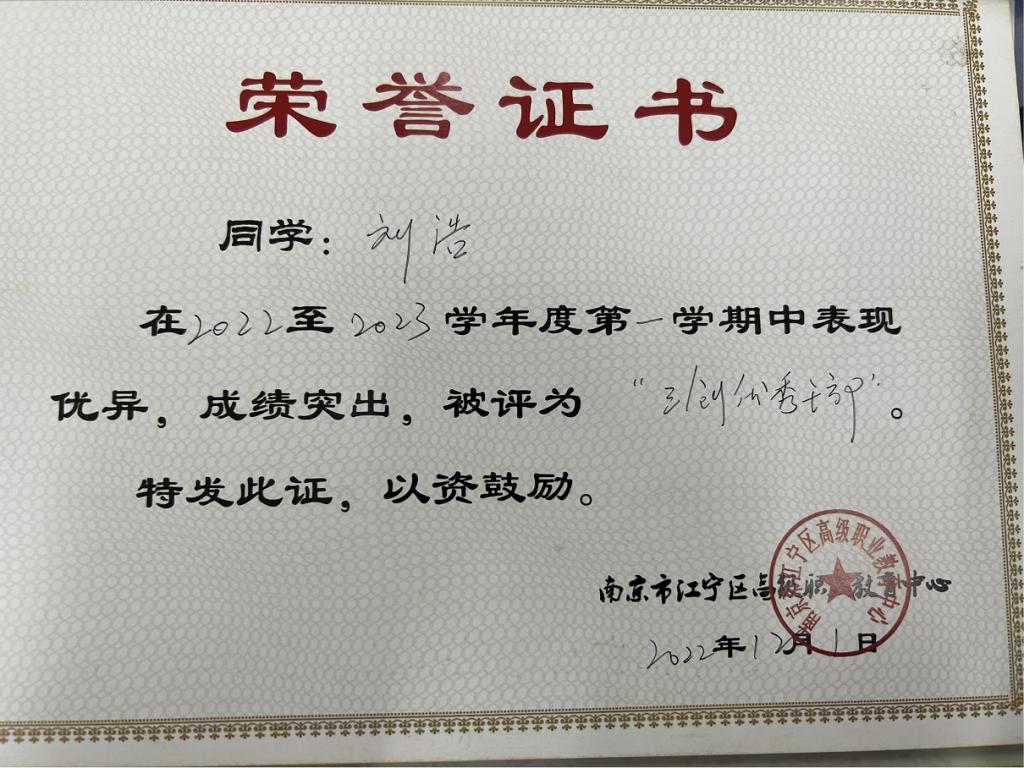 荣誉证书
同学：刘浩
在2022至2023学年度第一学期中表现
优异，成绩突出，被评为“三创优秀干部”。
特发此证，以资鼓励。
南京市江宁区高级职业教育中心
2022年12月1日
南京市江宁区高级职业教育中心